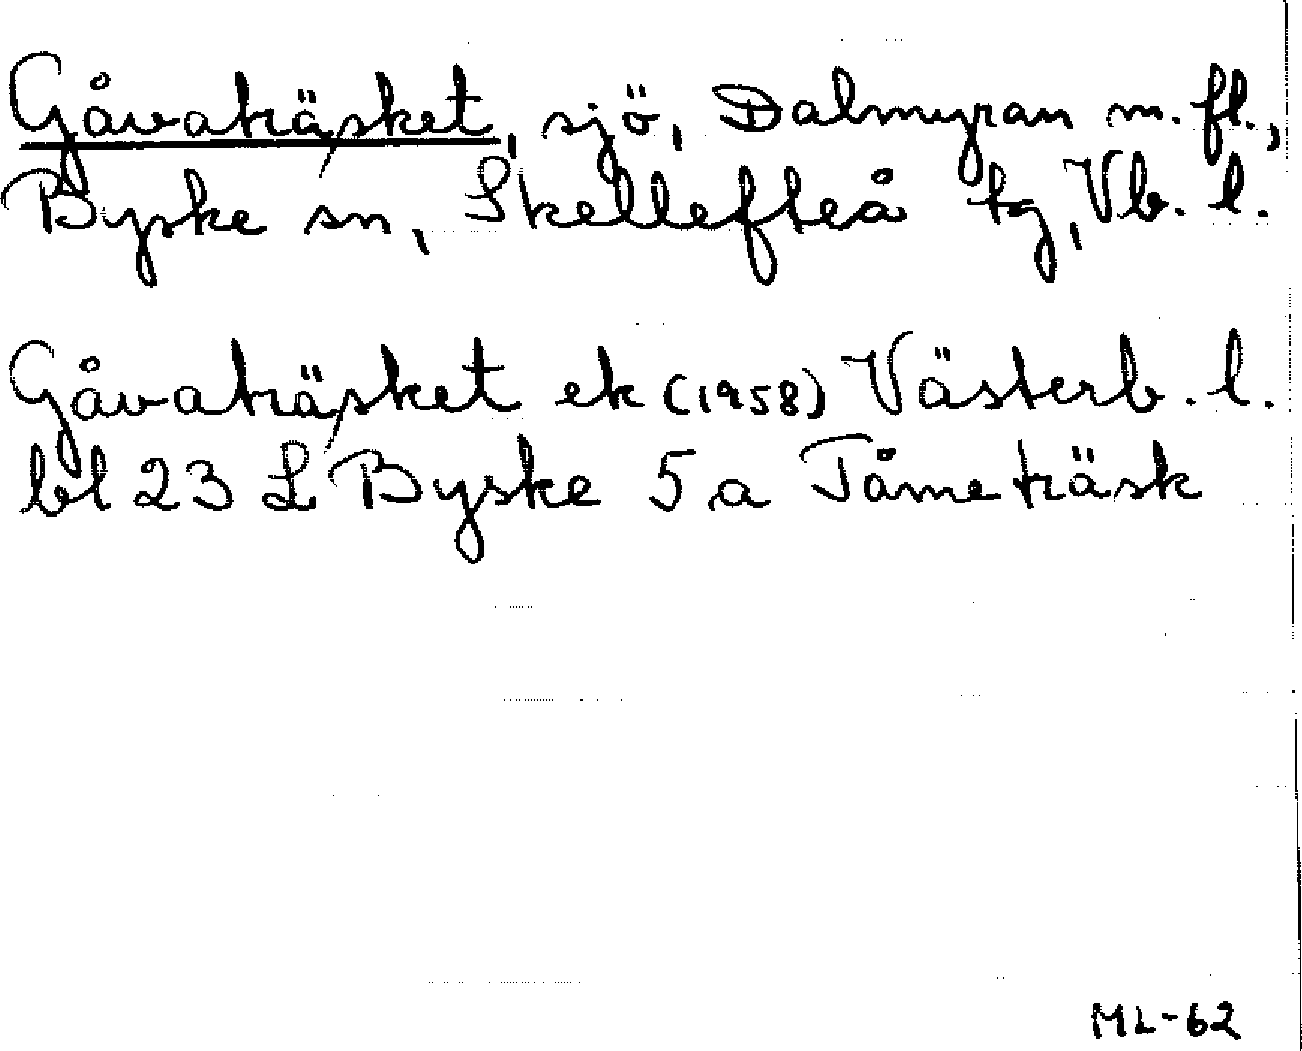 Gåvaträsket, sjö, Dalmyran m. fl.,
Byske sn, Skellefteå tg, Vb. l.
Gåvaträsket ek (1958) Västerb. l.
bl 23 L Byske 5 a Tåmeträsk
ML-62